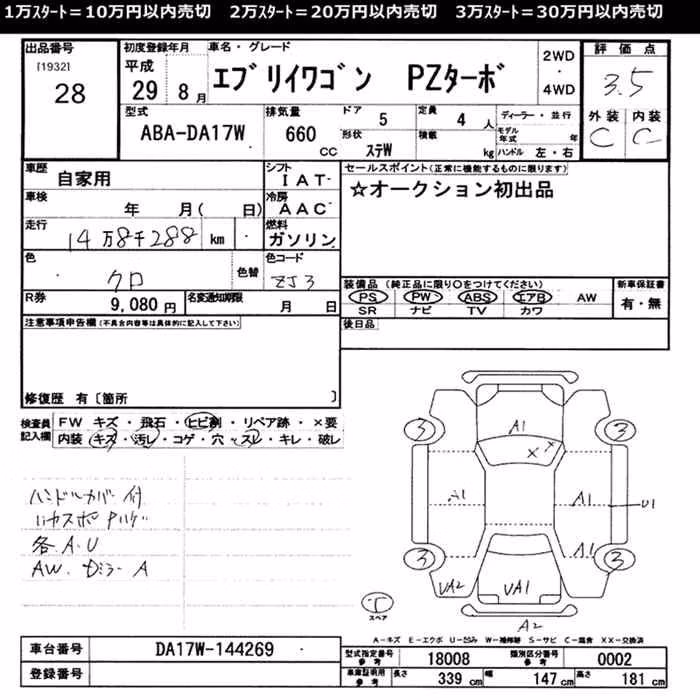 1万ｽﾀｰﾄ＝10万円以内売切　2万ｽﾀｰﾄ＝20万円以内売切　3万ｽﾀｰﾄ＝30万円以内売切
出品番号 初度登録年月 車名・グレード 2WD・4WD 評価点
[1932] 28 平成 29 8月 エブリイワゴン PZターボ 3.5
型式 排気量 ドア 5 定員 4人 ディーラー・並行 外装 内装
ABA-DA17W 660 CC 形状 ステW 積載 kg モデル年式 年 ハンドル 左・右 C C
車歴 自家用 シフト IAT セールスポイント(正常に機能するものに限ります)
車検 年 月( 日) 冷房 AAC ☆オークション初出品
走行 14万8千288 km 燃料 ガソリン
色 クロ 色替 色コード ZJ3
装備品(純正品に限り○をつけてください) 新車保証書
R券 9,080円 名変通知期限 月 日 PS PW ABS エアB AW 有・無
SR ナビ TV カワ
注意事項申告欄(不具合内容等は具体的に記入して下さい) 後日品
修復歴 有〔箇所 〕
検査員記入欄 FW キズ・飛石・ヒビ割・リペア跡・×要
内装 キズ・汚レ・コゲ・穴・スレ・キレ・破レ
ハンドルカバー付
各A.U
AW.ドミラーA
A1
3 3
× ×
A1 A1 U1
A1
3 3
UA2 UA1
A2
T
スペア
A－キズ E－エクボ U－凹み W－補修跡 S－サビ C－腐食 XX－交換済
車台番号 DA17W-144269 型式指定番号 参考 18008 類別区分番号 参考 0002
登録番号 車庫証明用参考 長さ 339 cm 幅 147 cm 高さ 181 cm